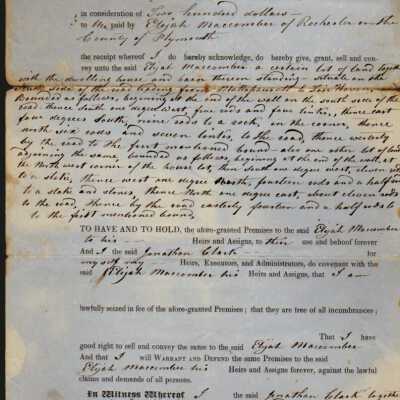 in consideration of Two hundred dollars —
to Me paid by Elijah Maccomber of Rochester in the
County of Plymouth
the receipt whereof I do hereby acknowledge, do hereby give, grant, sell and con-
vey unto the said Elijah Maccomber a certain lot of land together
with the dwelling house and barn thereon standing - Situate on the
North side of the road leading from Mattapoisett to Fair Haven,
Bounded as follows, beginning at the end of the wall on the south side of the
road, thence South one degree west, four rods and four links, thence east
four degrees South, nine rods to a rock, in the corner, thence
north six rods and seven links, to the road, thence westerly
by the road to the first mentioned bound - also one other lot of land
adjoining the same bounded as follows, beginning at the end of the wall, at
the North west corner of the house lot, then South one degree west, eleven rods
to a stake, thence west one degree North, fourteen rods and a half rod
to a stake and stones, thence North one degree east, about eleven rods
to the road, thence by the road easterly fourteen and a half rods to
to the first mentioned bound,
TO HAVE AND TO HOLD, the afore-granted Premises to the said Elijah Maccomber
to his — Heirs and Assigns, to their use and behoof forever
And I the said Jonathan Clark — for
myself my — Heirs, Executors, and Administrators, do covenant with the
said Elijah Maccomber his Heirs and Assigns, that I am
lawfully seized in fee of the afore-granted Premises; that they are free of all incumbrances;
That I have
good right to sell and convey the same to the said Elijah Maccomber
And that I will WARRANT AND DEFEND the same Premises to the said
Elijah Maccomber his Heirs and Assigns forever, against the lawful
claims and demands of all persons.
In Witness Whereof I the said Jonathan Clark together